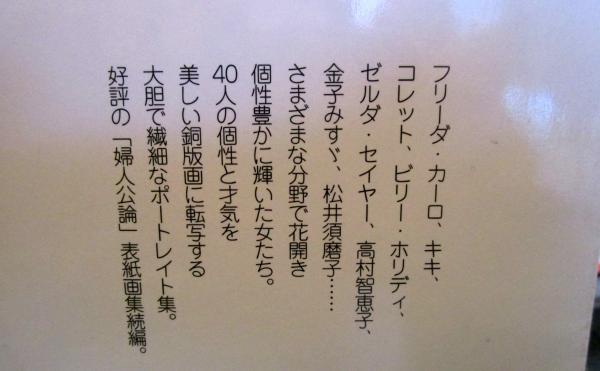 フリーダ・カーロ、キキ、
コレット、ビリー・ホリディ、
ゼルダ・セイヤー、高村智恵子、
金子みすゞ、松井須磨子……
さまざまな分野で花開き
個性豊かに輝いた女たち。
40人の個性と才気を
美しい銅版画に転写する
大胆で繊細なポートレイト集。
好評の「婦人公論」表紙画集続編。